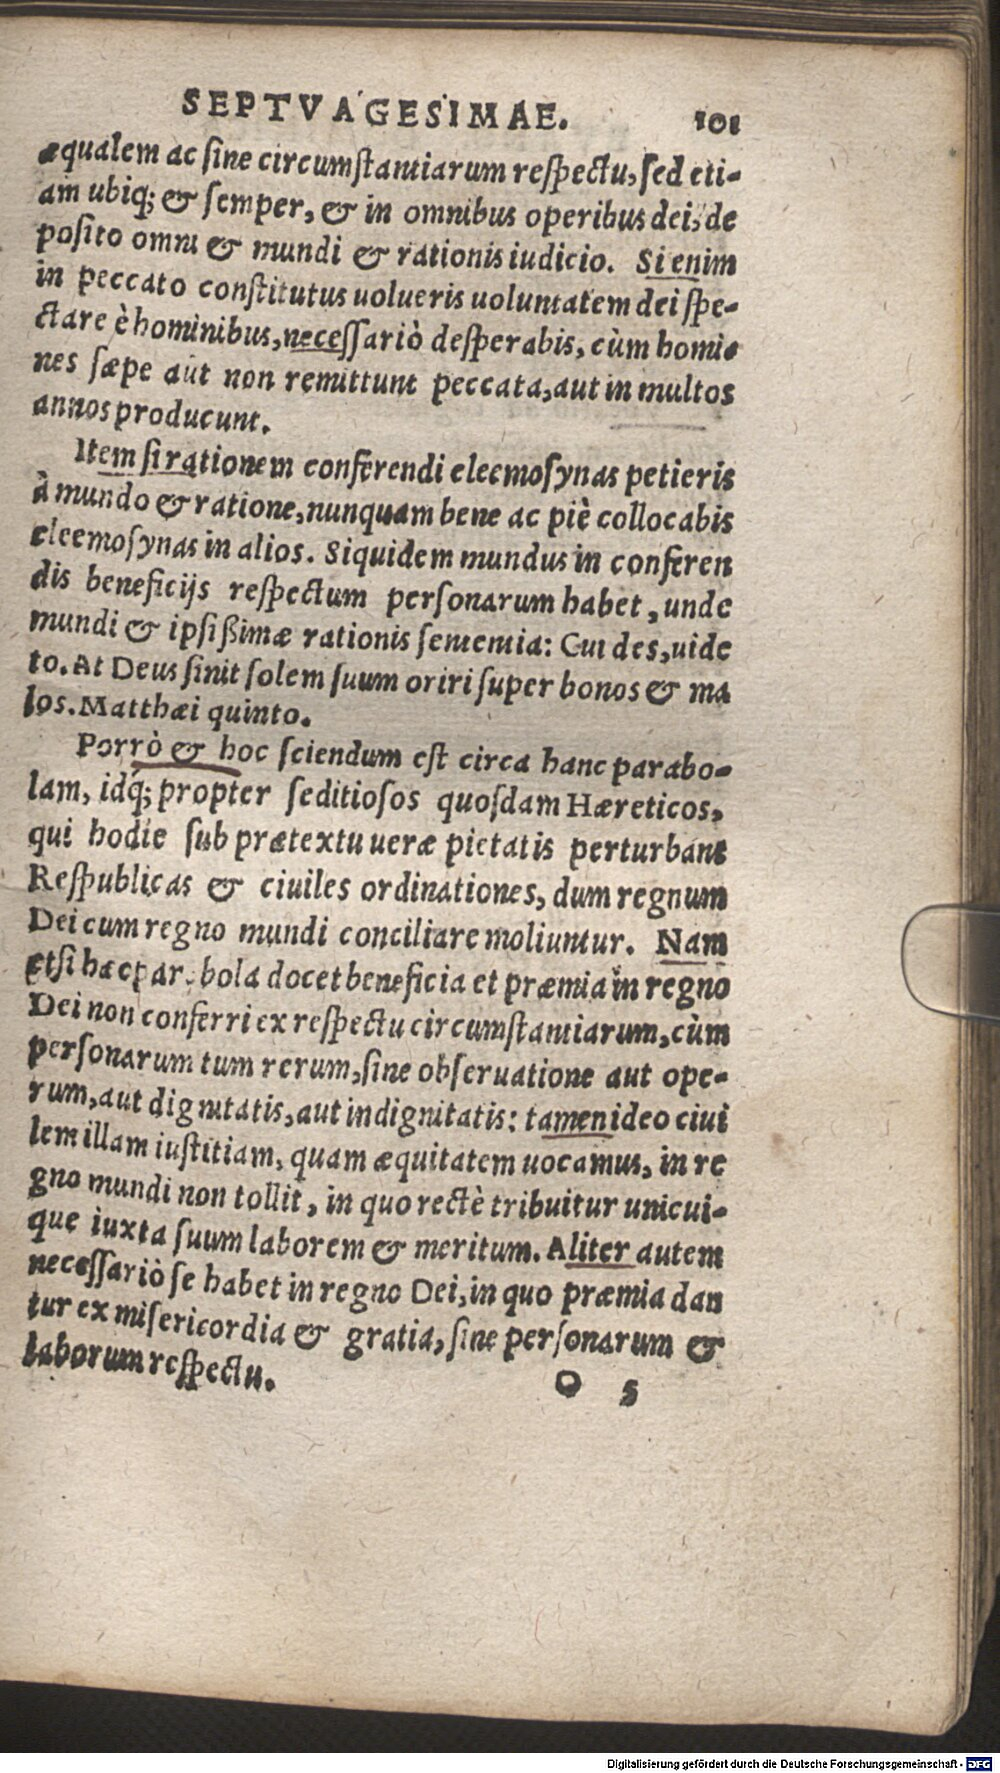 SEPTVAGESIMAE. 101
æqualem ac sine circumstantiarum respectu, sed eti-
am ubiq; & semper, & in omnibus operibus dei, de
posito omni & mundi & rationis iudicio. Si enim
in peccato constitutus uolueris uoluntatem dei spe-
ctare è hominibus, necessariò desperabis, cùm homi-
nes sæpe aut non remittunt peccata, aut in multos
annos producunt.
Item si rationem conferendi eleemosynas petieris
à mundo & ratione, nunquam bene ac piè collocabis
eleemosynas in alios. Siquidem mundus in conferen
dis beneficijs respectum personarum habet, unde
mundi & ipsißimæ rationis sententia: Cui des, uide
to. At Deus sinit solem suum oriri super bonos & ma
los. Matthæi quinto.
Porrò & hoc sciendum est circa hanc parabo-
lam, idq́; propter seditiosos quosdam Hæreticos,
qui hodie sub prætextu ueræ pietatis perturbant
Respublicas & ciuiles ordinationes, dum regnum
Dei cum regno mundi conciliare moliuntur. Nam
etsi hæc parabola docet beneficia et præmia in regno
Dei non conferri ex respectu circumstantiarum, cùm
personarum tum rerum, sine obseruatione aut ope-
rum, aut dignitatis, aut indignitatis: tamen ideo ciui
lem illam iustitiam, quam æquitatem uocamus, in re
gno mundi non tollit, in quo rectè tribuitur unicui-
que iuxta suum laborem & meritum. Aliter autem
necessariò se habet in regno Dei, in quo præmia dan
tur ex misericordia & gratia, sine personarum &
laborum respectu.
O 5
Digitalisierung gefördert durch die Deutsche Forschungsgemeinschaft - DFG